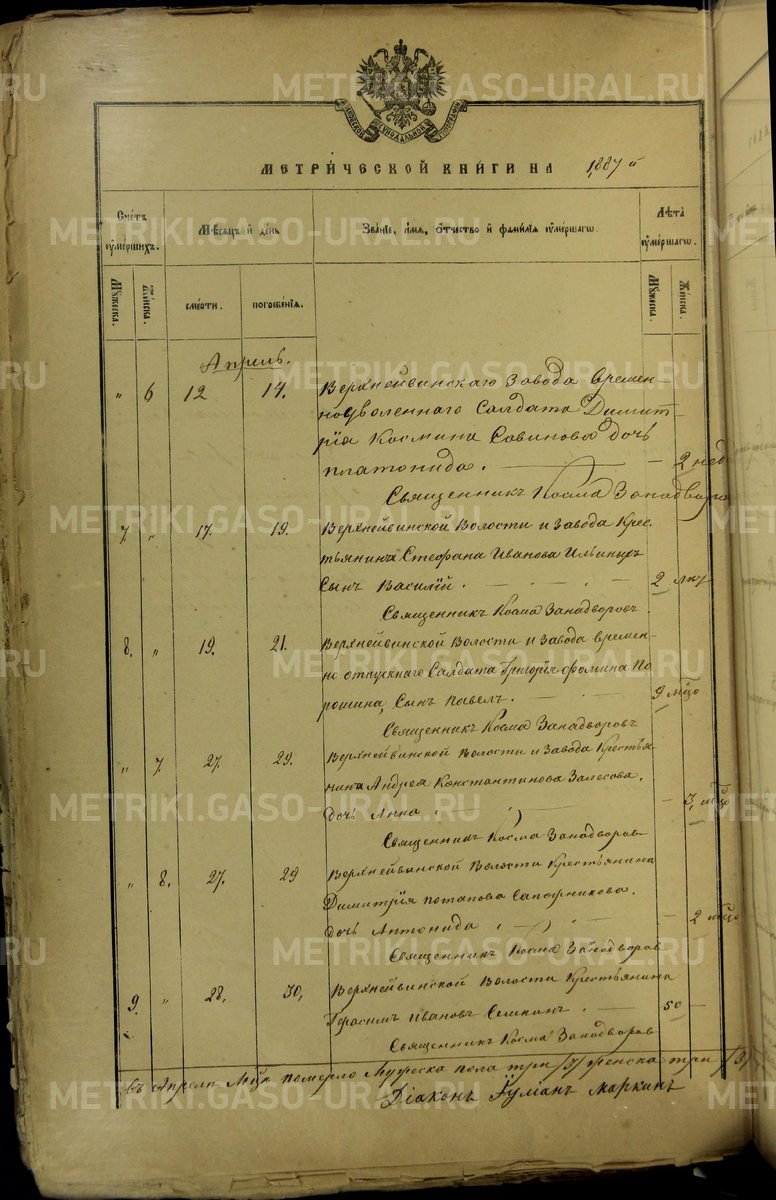 МЕТРИ́ЧЕСКОЙ КНИ́ГИ НА 1887 й
Счетъ
оумершихъ.
Мѣсяцъ и день
Званіе, имя, отчество и фамилія оумершагω.
Лѣта
оумершагω.
Мужеска.
Женска.
смерти.
погребенія.
Мужеска.
Женска.
Апрѣль.
" 6 12 14. Верхнейвинскаго Завода времен-
ноуволеннаго Солдата Димит-
рія Космина Савинова дочь
платонида. — 2 нед
Священникъ Косма Западворо
7. " 17. 19. Верхнейвинской Волости и Завода Крес-
тьянина Стефана Иванова Ильиныхъ
Сынъ Василій. 2 лѣт
Священникъ Косма Западворовъ.
8. " 19. 21. Верхнейвинской Волости и Завода времен-
но отпускнаго Солдата Григорія фомина По
рошина, Сынъ павелъ. 9 мѣцо
Священникъ Косма Западворовъ
" 7. 27. 29. Верхнейвинской Волости и Завода Крестья
нина Андрея Константинова Залесова.
дочь Анна. — 3, мѣцо
Священникъ Косма Западворов
" 8. 27. 29 Верхнейвинской Волости Крестьянина
Димитрія потапова Сапожникова.
дочь Антонида. — 2 мѣцо
Священникъ Косма Западворов
9. " 28. 30, Верхнейвинской Волости Крестьянина
Герасимъ Ивановъ Семкинъ. 50 —
Священникъ Косма Западворов
въ Апрѣлѣ Мцѣ померло Мужеска пола три /3/ женска три /3/
Діаконъ маркинъ
METRIKI.GASO-URAL.RU